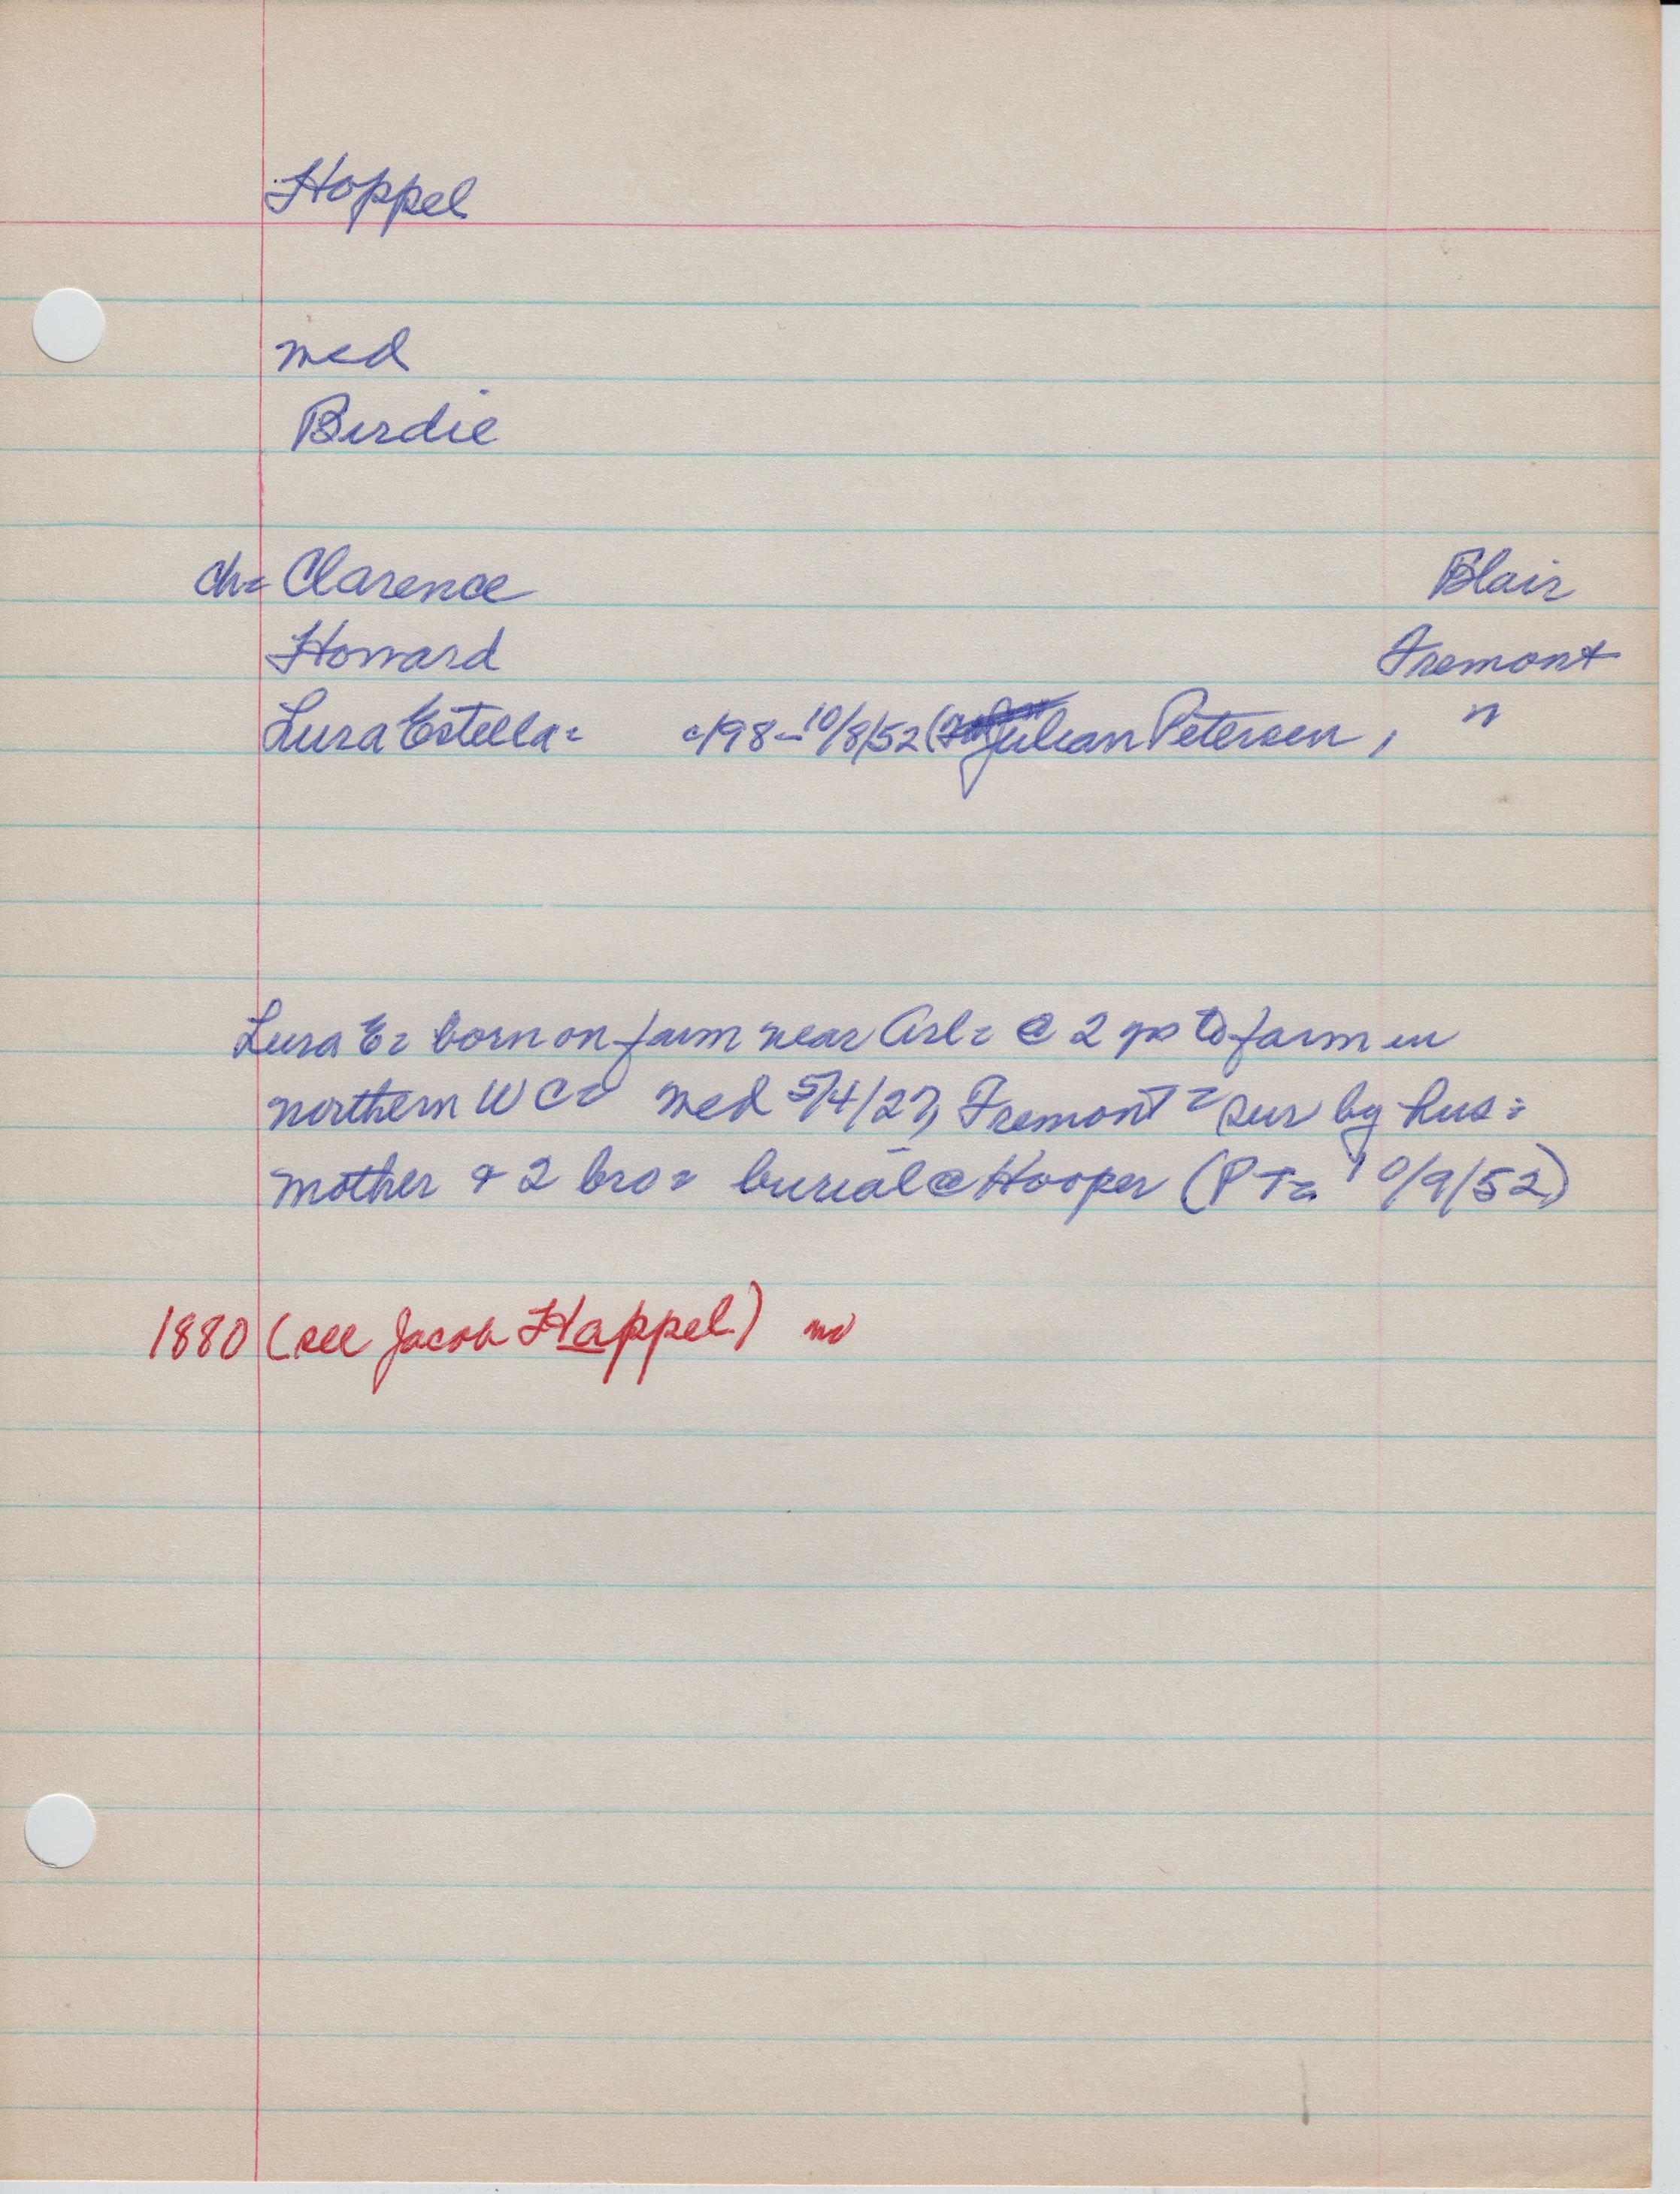 Hoppel
med
Birdie
ch= Clarence Blair
Howard Fremont
Lura Estella= c/98-10/8/52 (Julian Petersen, "
Lura E= born on farm near Arl= @ 2 yrs to farm in
northern WC= med 5/4/27, Fremont = sur by hus=
mother & 2 bro= burial @ Hooper (PT= 10/9/52)
1880 (see Jacob Happel)